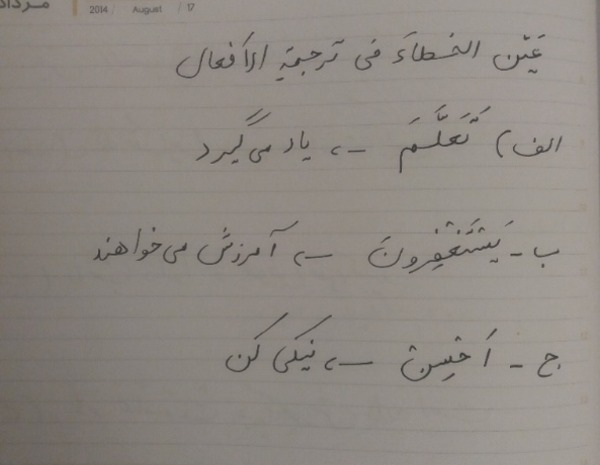 مرداد
2014 / August / 17
عَیّن الخطاءَ فی ترجمةِ الافعال
الف) تَعَلَّمَ ← یاد می‌گیرد
ب - یَسْتَغْفِرونَ ← آمرزش می‌خواهند
ج - اَحْسِنْ ← نیکی کن